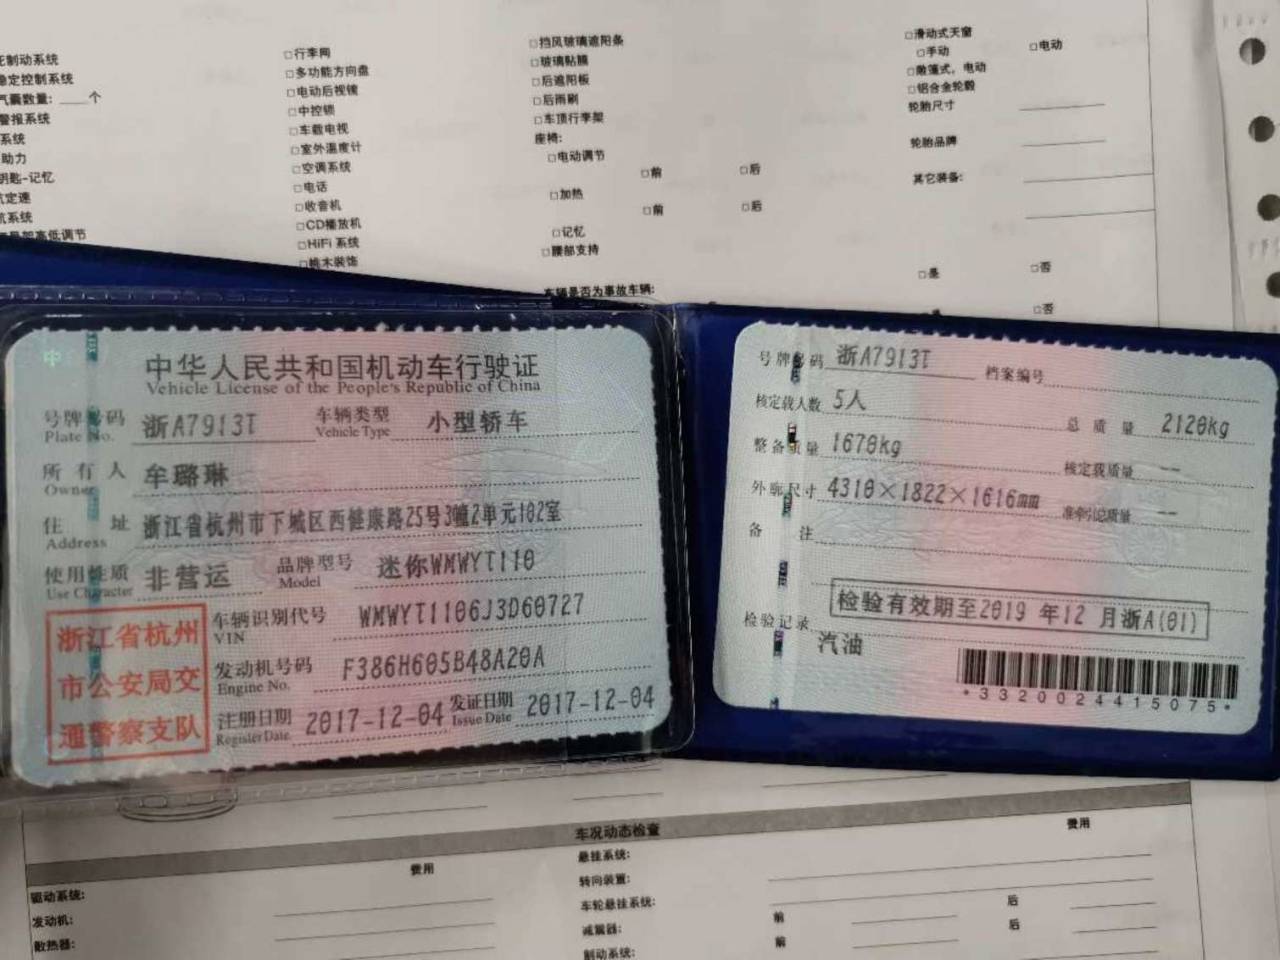 制动系统
稳定控制系统
气囊数量: ____个
警报系统
系统
助力
钥匙-记忆
定速
航系统
高低调节
□行李网
□多功能方向盘
□电动后视镜
□中控锁
□车载电视
□室外温度计
□空调系统
□电话
□收音机
□CD播放机
□HiFi 系统
□桃木装饰
□挡风玻璃遮阳条
□玻璃贴膜
□后遮阳板
□后雨刷
□车顶行李架
座椅:
□电动调节
□前 □后
□加热
□前 □后
□记忆
□腰部支持
车辆是否为事故车辆:
□滑动式天窗
□手动 □电动
□敞篷式，电动
□铝合金轮毂
轮胎尺寸
轮胎品牌
其它装备:
□是 □否
□否
中华人民共和国机动车行驶证
Vehicle License of the People's Republic of China
号牌号码 浙A7913T 车辆类型 小型轿车
Plate No. Vehicle Type
所有人 牟璐琳
Owner
住址 浙江省杭州市下城区西健康路25号3幢2单元102室
Address
使用性质 非营运 品牌型号 迷你WMWYT110
Use Character Model
浙江省杭州
市公安局交
通警察支队
车辆识别代号 WMWYT1106J3D60727
VIN
发动机号码 F386H605B48A20A
Engine No.
注册日期 2017-12-04 发证日期 2017-12-04
Register Date Issue Date
号牌号码 浙A7913T 档案编号
核定载人数 5人 总质量 2120kg
整备质量 1670kg 核定载质量 --
外廓尺寸 4310×1822×1616mm 准牵引总质量 --
备注
检验有效期至2019 年12 月浙A(01)
检验记录
汽油
*3320024415075*
车况动态检查
费用 费用
驱动系统:
发动机:
散热器:
悬挂系统:
转向装置:
车轮悬挂系统: 后
减震器: 前 后
制动系统: 前